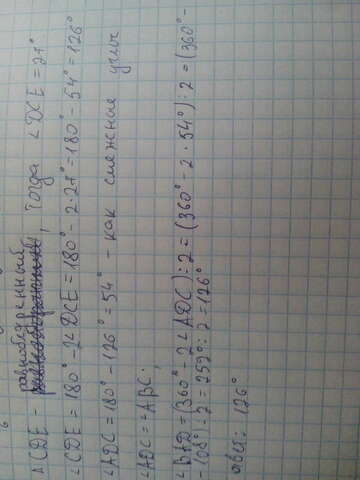 △CDE - равнобедренный, тогда ∠DCE = 27°
∠CDE = 180° - 2∠DCE = 180° - 2·27° = 180° - 54° = 126°
∠ADC = 180° - 126° = 54° - как смежные углы
∠ADC = ∠ABC;
∠BAD = (360° - 2∠ADC) : 2 = (360° - 2·54°) : 2 = (360° -
- 108°) : 2 = 252° : 2 = 126°
ответ: 126°